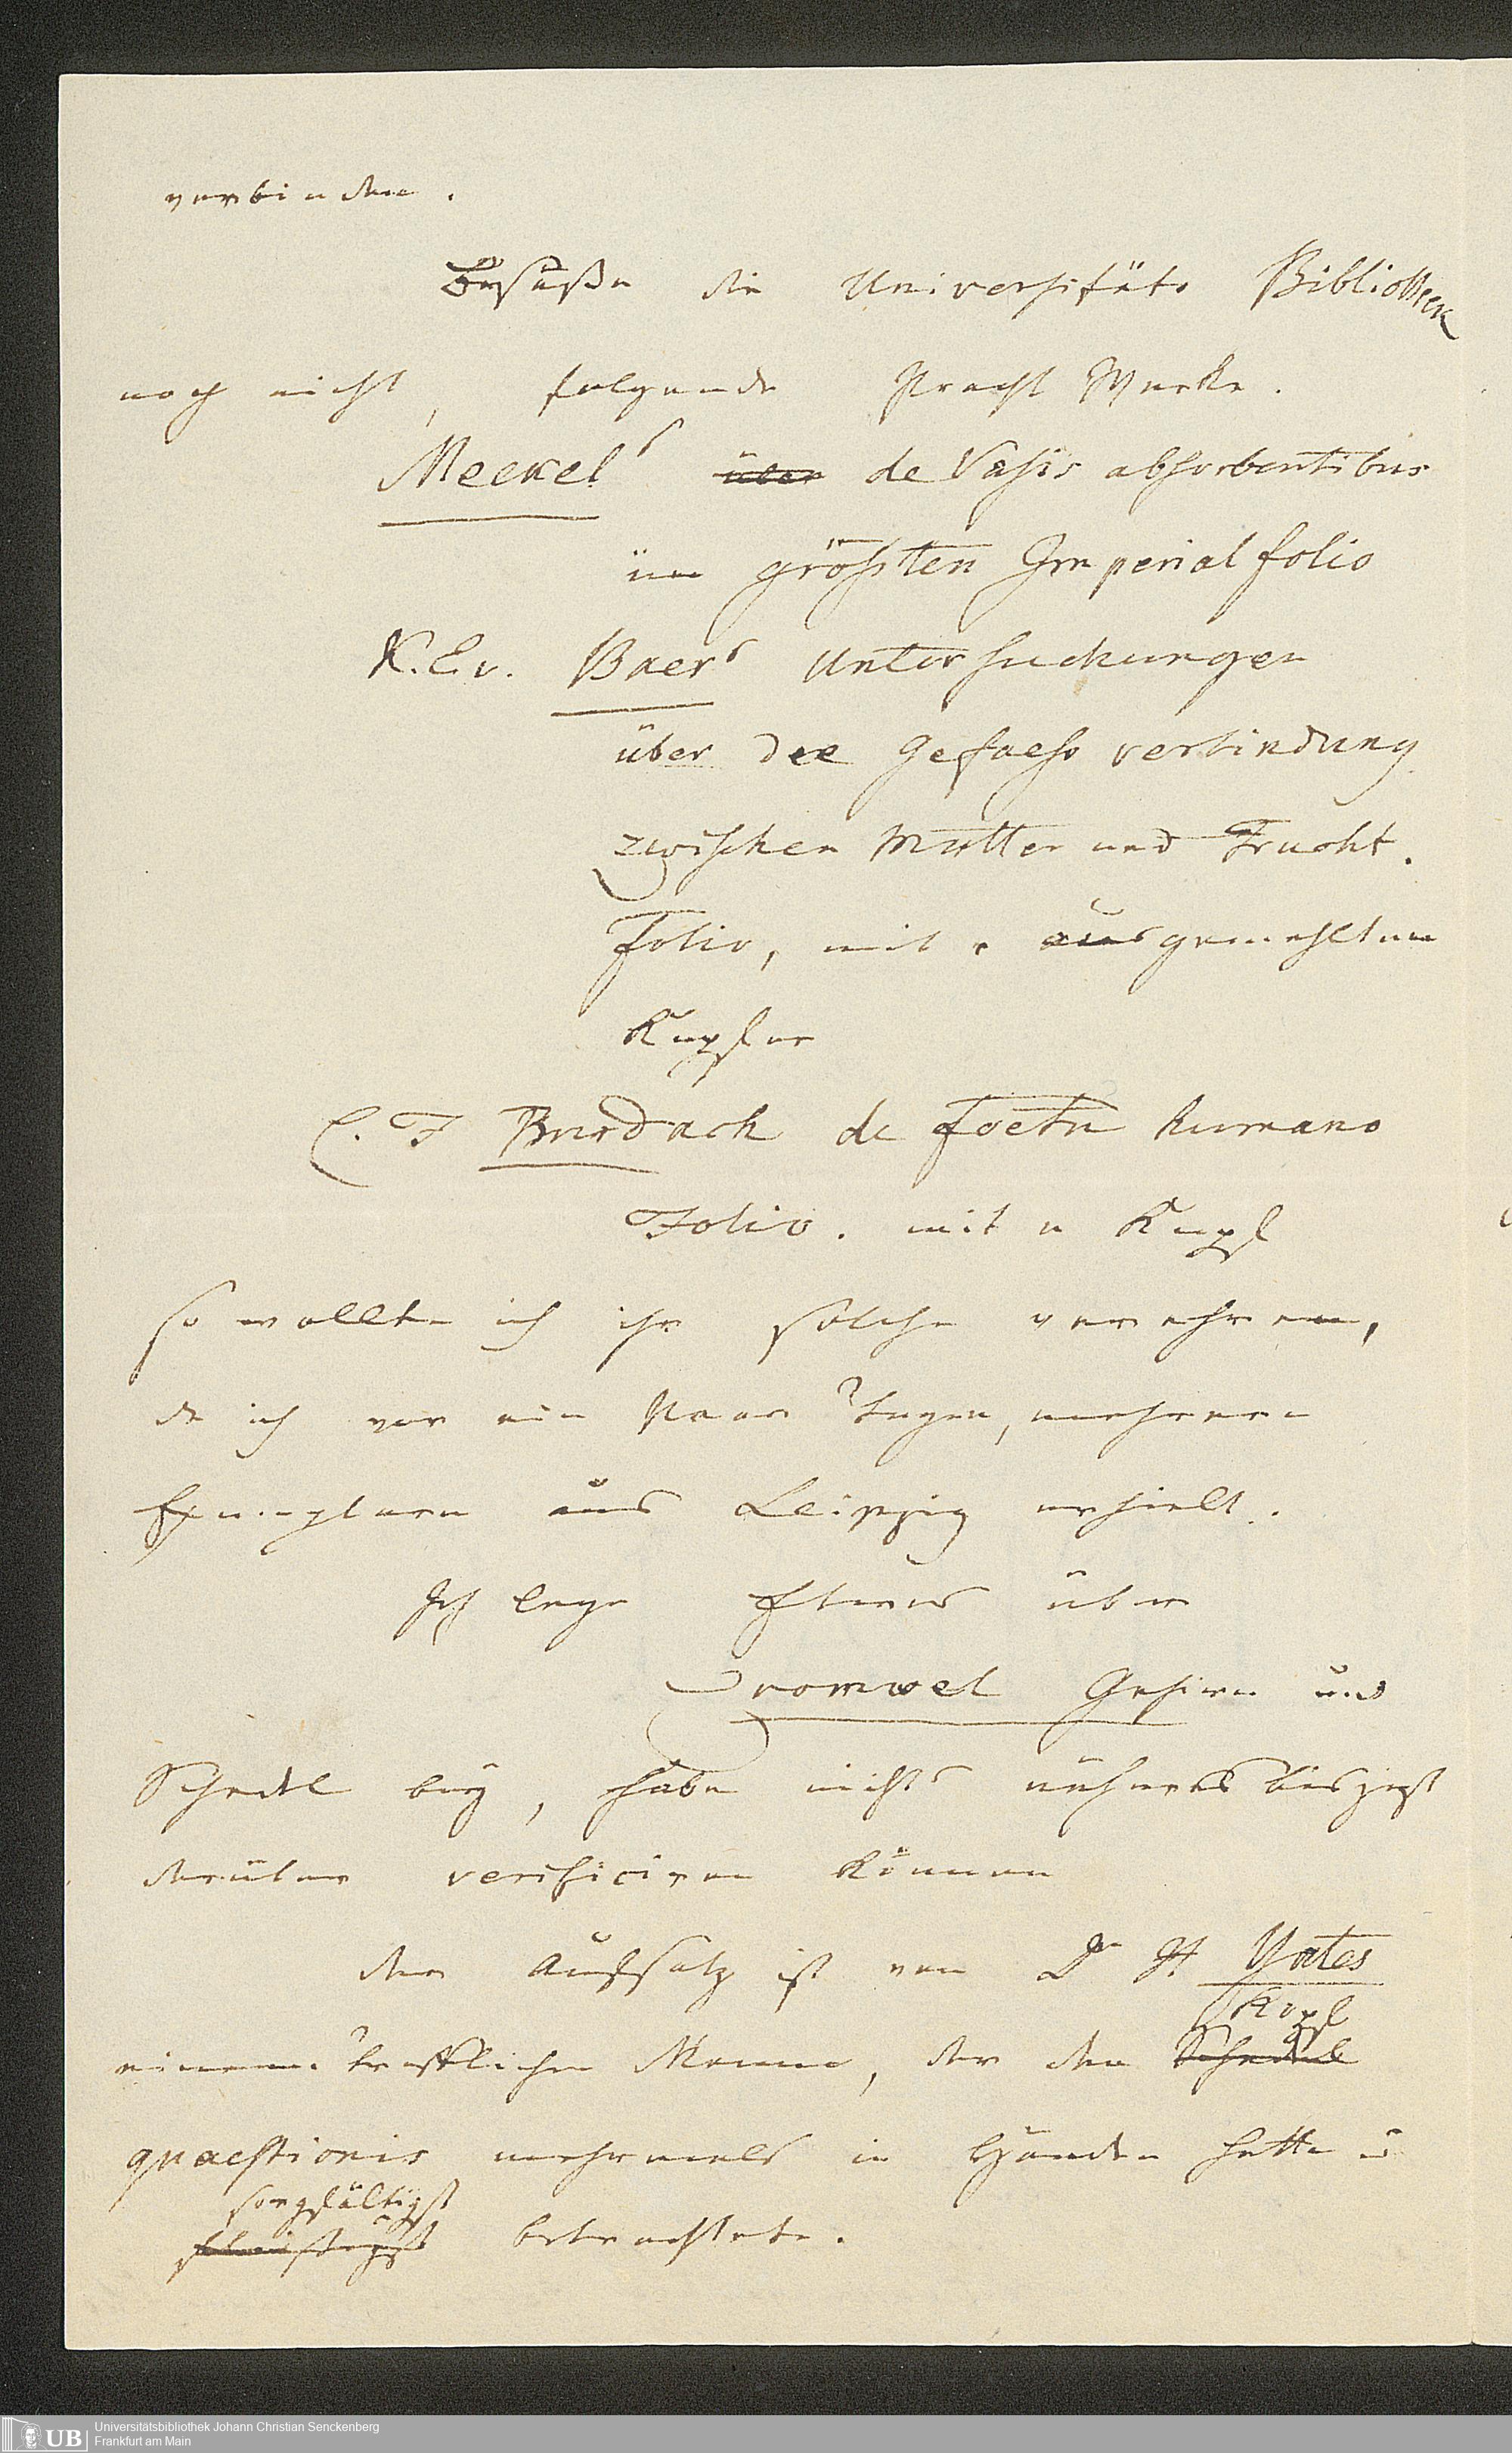 verbinden.
Besäße die Universitäts Bibliothek
noch nicht, folgende Pracht Werke.
Meckels über de Vasis absorbentibus
im größten Imperial folio
K. E. v. Baers Untersuchungen
über die Gefaess verbindung
zwischen Mutter und Frucht.
Folio, mit ausgemahlten
Kupfer
C. F Burdach de foetu humano
Folio. mit Kupf
so wollte ich ihr solche verehren,
da ich vor ein Paar Tagen, mehrere
Exemplare aus Leipzig erhielt.
Ich lege Etwas über
Cromwel Gehirn und
Schedel bey, habe nichts näheres bis jezt
darüber verificiren können
der Aufsatz ist von Dr H Yates
Kopf
einem trefflichen Manne, der den Schedel
quaestionis mehrmals in Händen hatte u
sorgfältigst
fleissigst betrachtete.
UB Universitätsbibliothek Johann Christian Senckenberg
Frankfurt am Main